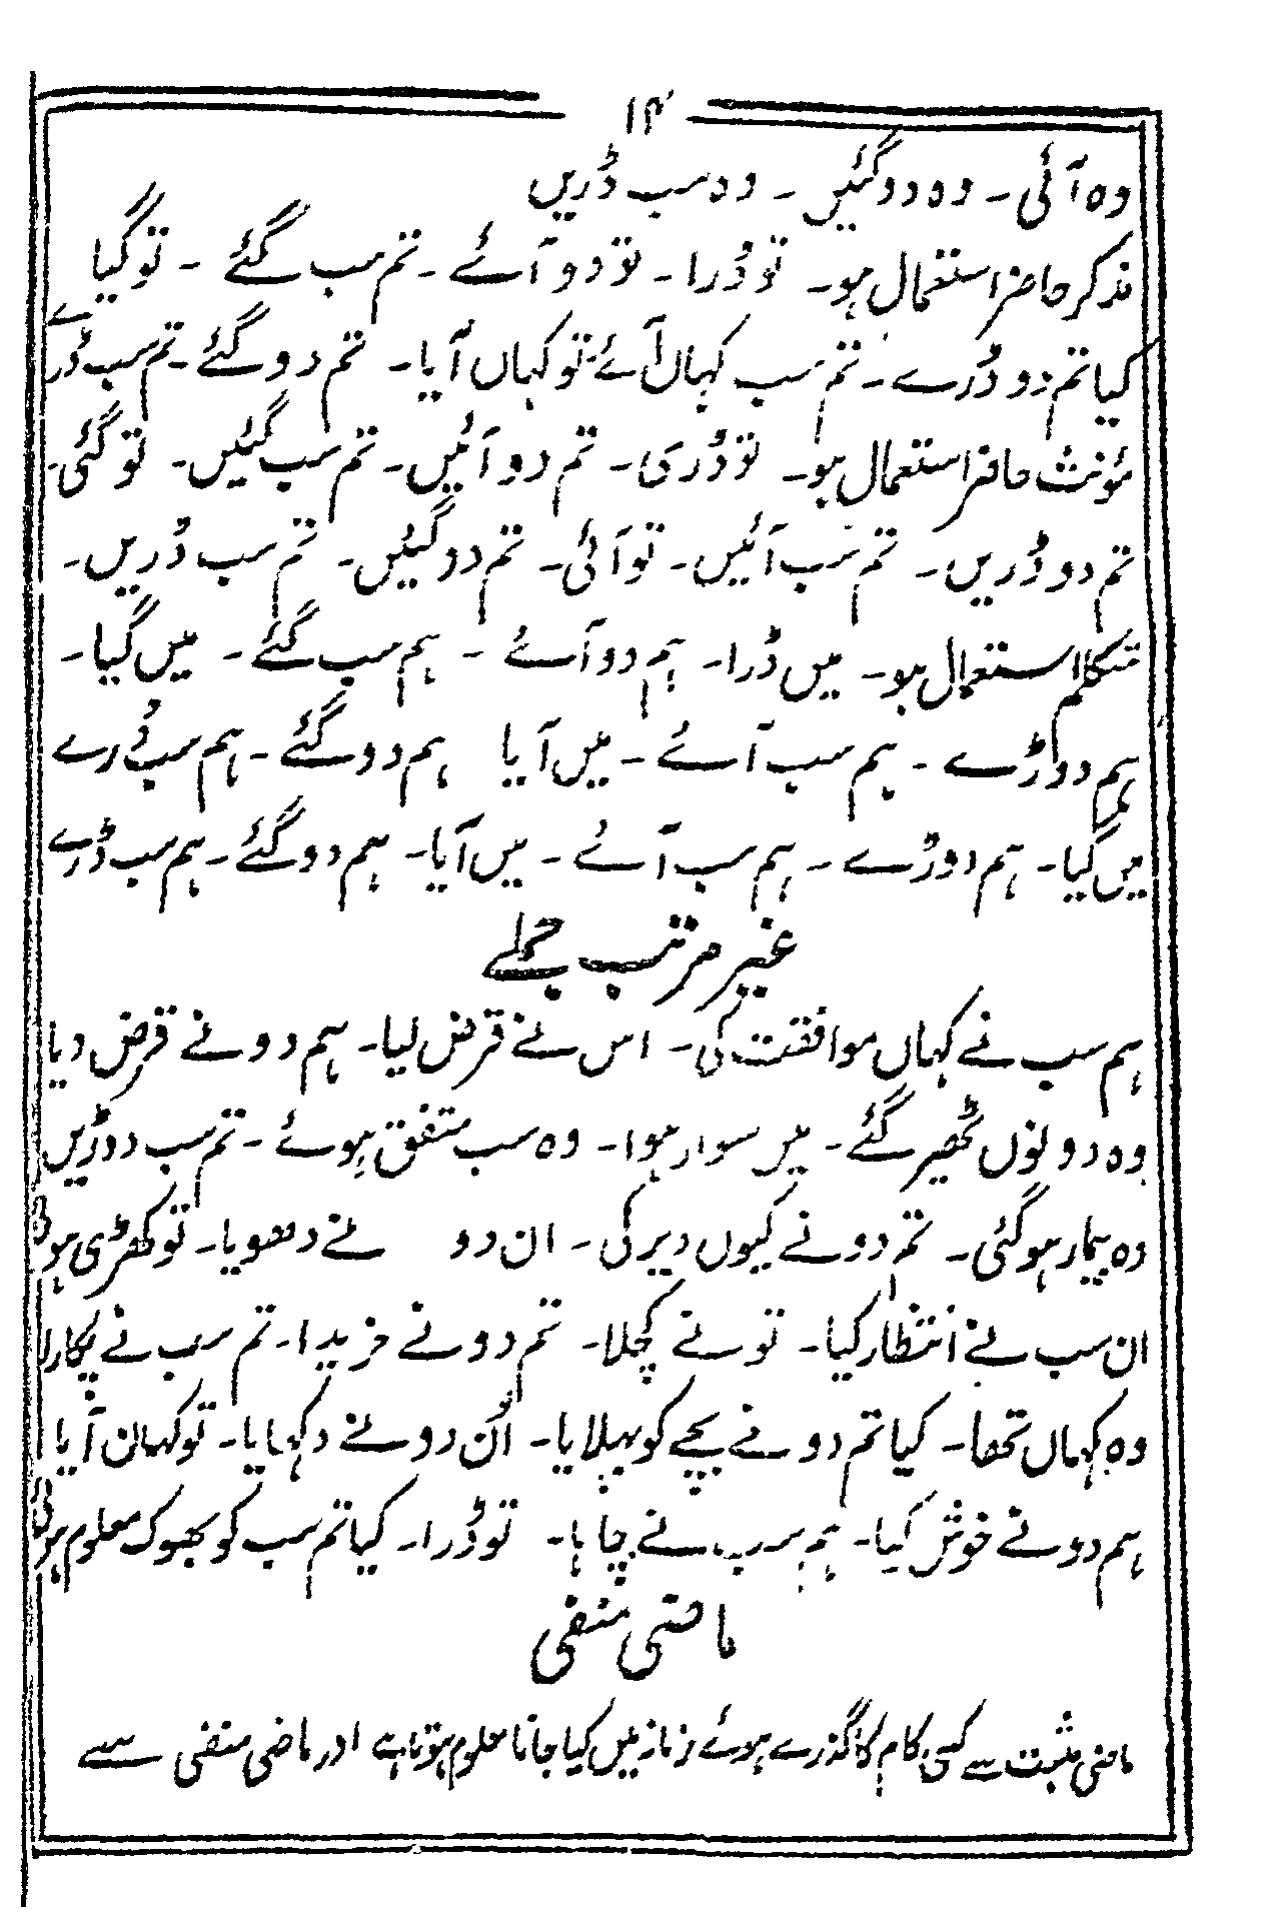 ۱۴
وہ آئی ۔ وہ دو گئیں ۔ وہ سب ڈریں
مذکر حاضر استعمال ہو۔ تو ڈرا ۔ تو دو آئے ۔ تم سب گئے ۔ تو گیا
کیا تم دو ڈرے ۔ تم سب کہاں آئے ۔ تو کہاں آیا ۔ تم دو گئے ۔ تم سب ڈرے
مؤنث حاضر استعمال ہو۔ تو ڈری ۔ تم دو آئیں ۔ تم سب گئیں ۔ تو گئی ۔
تم دو ڈریں ۔ تم سب آئیں ۔ تو آئی ۔ تم دو گئیں ۔ تم سب ڈریں ۔
متکلم استعمال ہو۔ میں ڈرا ۔ ہم دو آئے ۔ ہم سب گئے ۔ میں گیا ۔
ہم دوڑے ۔ ہم سب آئے ۔ میں آیا ہم دو گئے ۔ ہم سب ڈرے
میں گیا ۔ ہم دوڑے ۔ ہم سب آئے ۔ میں آیا ۔ ہم دو گئے ۔ ہم سب ڈرے
غیر مرتب جملے
ہم سب نے کہاں موافقت کی ۔ اس نے قرض لیا ۔ ہم دو نے قرض دیا
وہ دونوں ٹھیر گئے ۔ میں سوار ہوا ۔ وہ سب متفق ہوئے ۔ تم سب دوڑیں
وہ بیمار ہوگئی ۔ تم دو نے کیوں دیر کی ۔ ان دو نے دھویا ۔ تو کھڑی ہوئی
ان سب نے انتظار کیا ۔ تو نے کچلا ۔ تم دو نے خریدا ۔ تم سب نے پکارا
وہ کہاں تھا ۔ کیا تم دو نے بچے کو بہلایا ۔ اُن دو نے دکہایا ۔ تو کہان آیا
ہم دو نے خوش کیا ۔ ہم سب نے چاہا ۔ تو ڈرا ۔ کیا تم سب کو بھوک معلوم ہوئی
ماضی منفی
ماضی مثبت سے کسی کام کا گذرے ہوئے زمانہ میں کیا جانا معلوم ہوتا ہے اور ماضی منفی سے